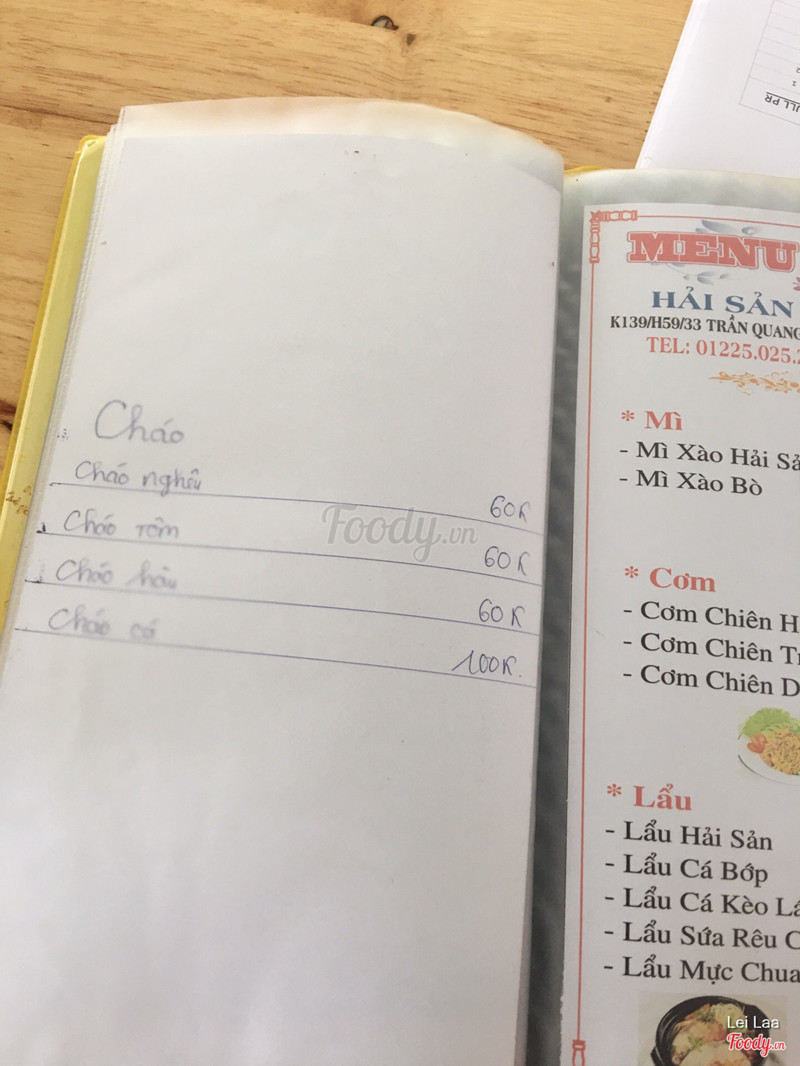 Cháo
Cháo nghêu 60K
Cháo tôm 60K
Cháo hàu 60K
Cháo cá 100K.
Foody.vn
ULL PR
MENU
HẢI SẢN
K139/H59/33 TRẦN QUANG
TEL: 01225.025.2
* Mì
- Mì Xào Hải Sả
- Mì Xào Bò
* Cơm
- Cơm Chiên H
- Cơm Chiên Tr
- Cơm Chiên D
* Lẩu
- Lẩu Hải Sản
- Lẩu Cá Bớp
- Lẩu Cá Kèo Lá
- Lẩu Sứa Rêu C
- Lẩu Mực Chua
Lei Laa
Foody.vn